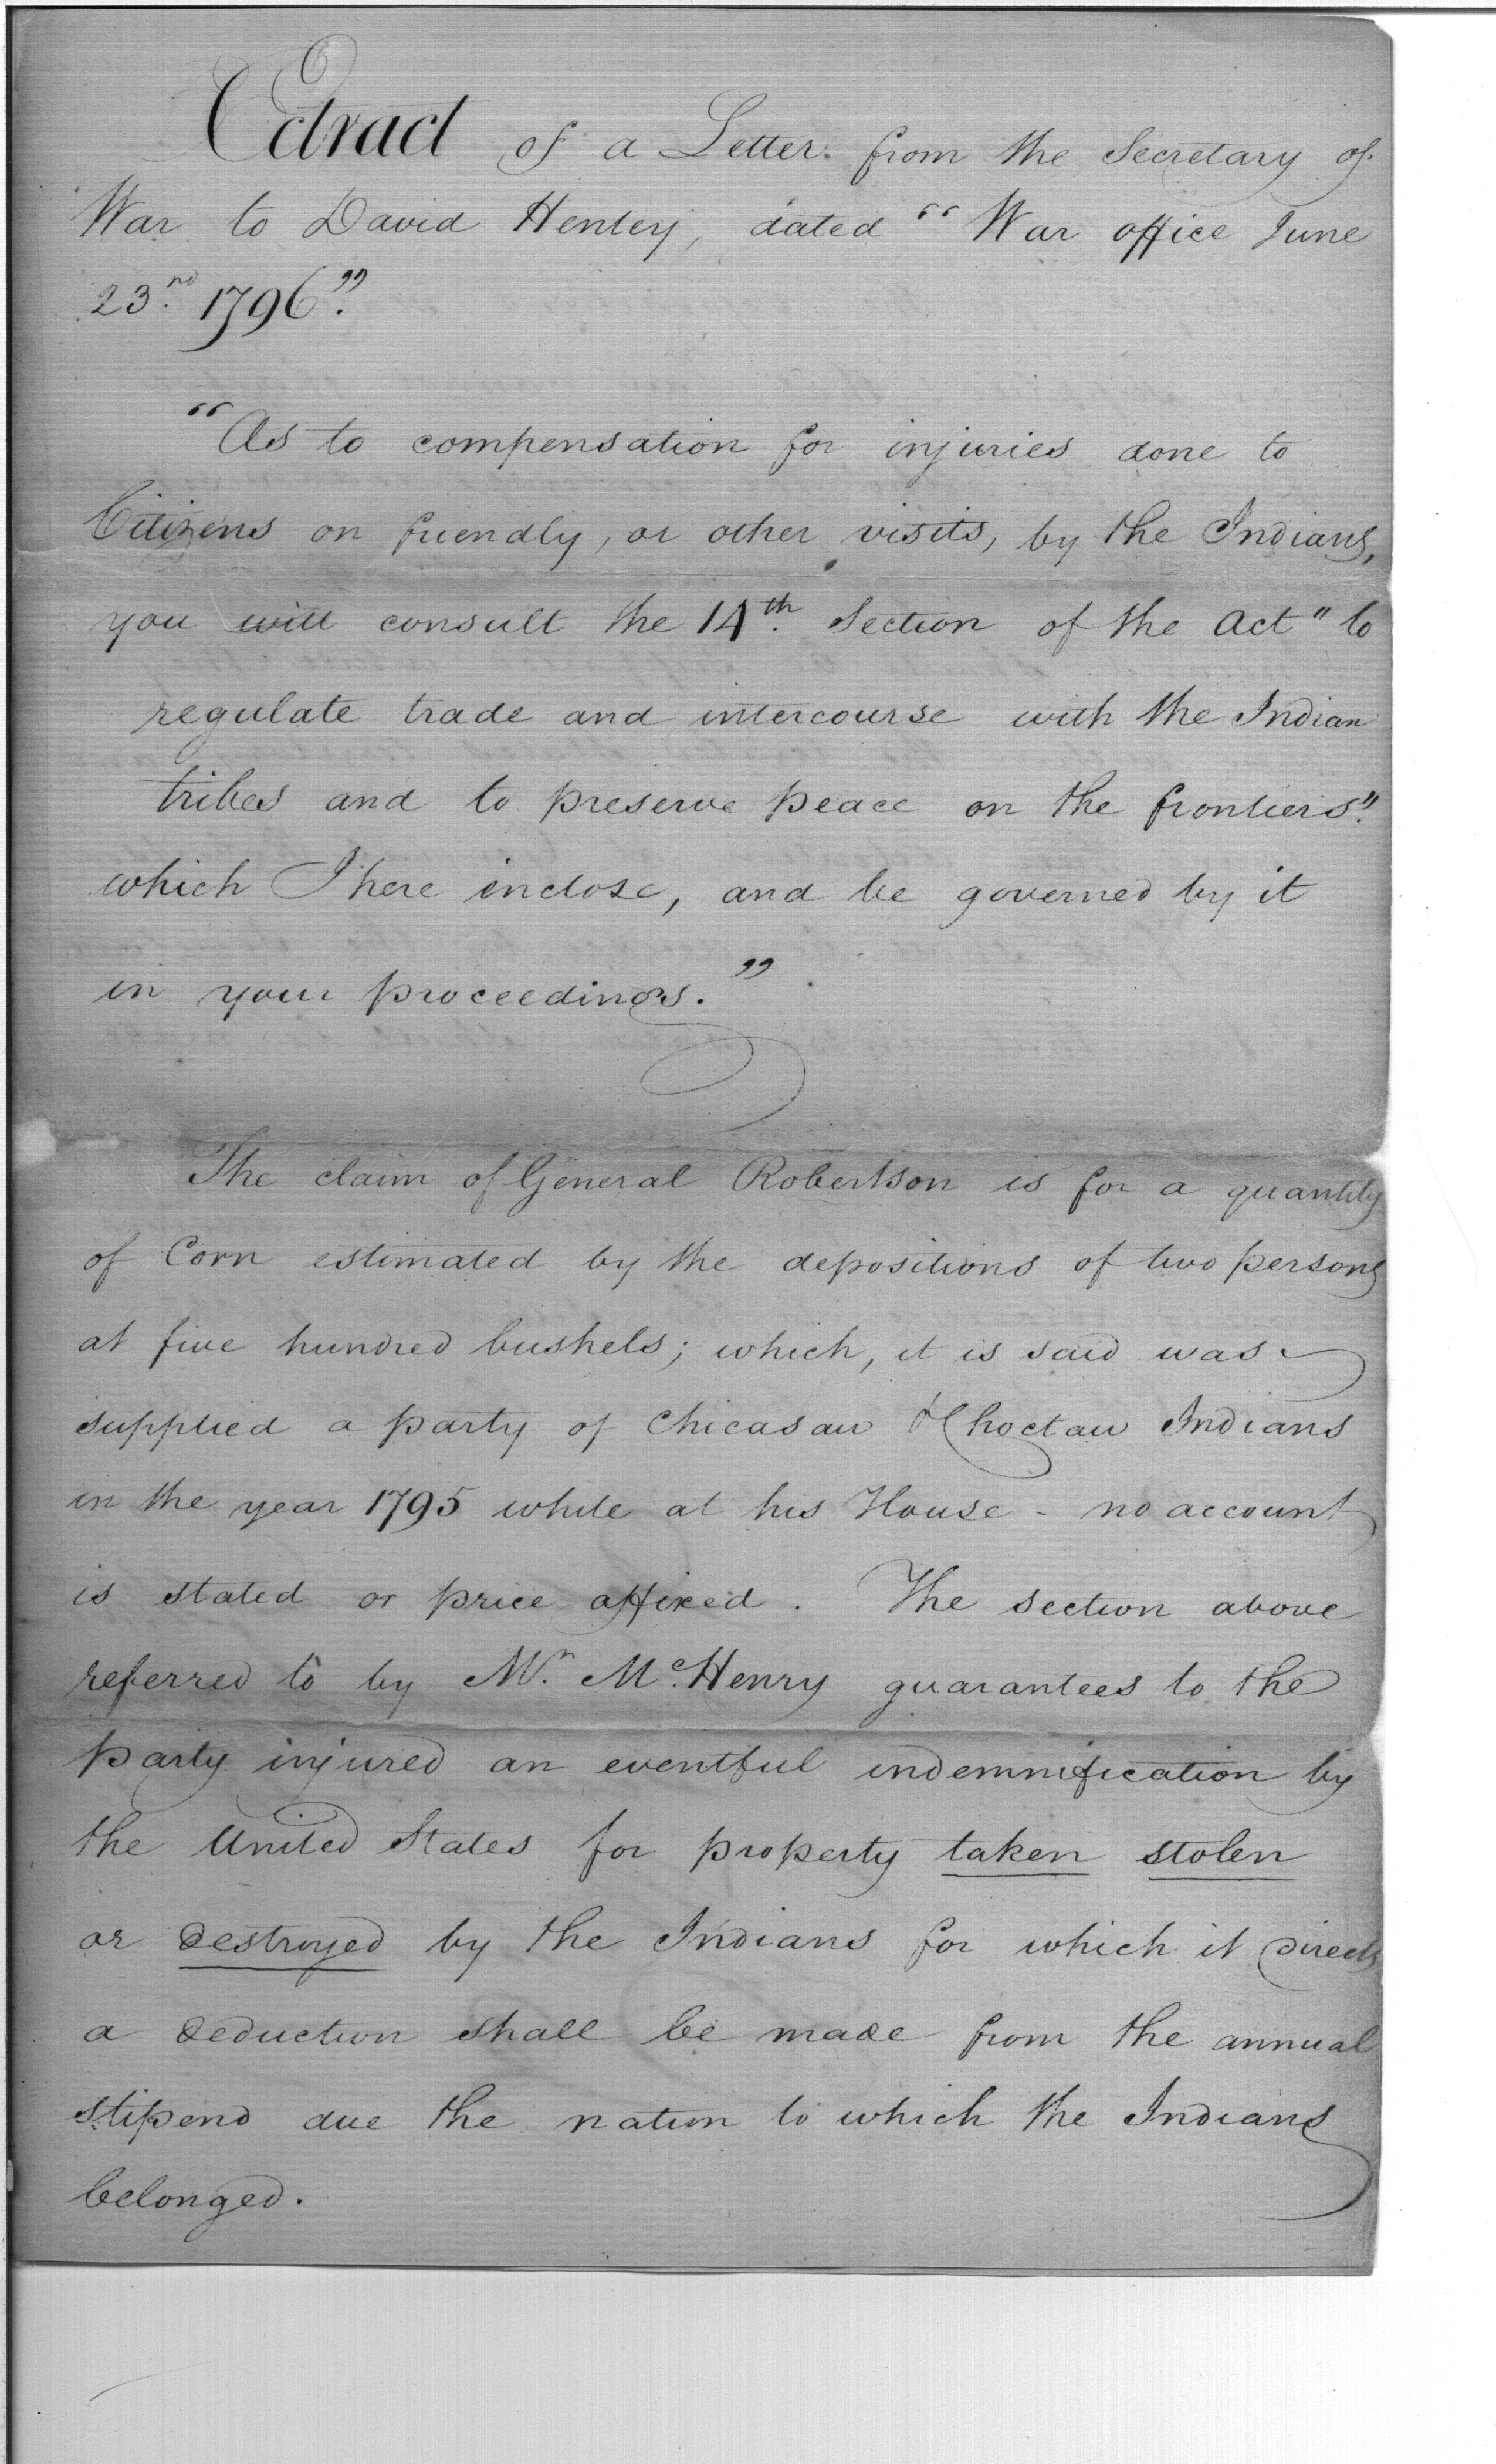 Extract of a Letter from the Secretary of
War to David Henley, dated "War office June
23.rd 1796."
"As to compensation for injuries done to
Citizens on friendly, or other visits, by the Indians,
you will consult the 14th. Section of the Act "to
regulate trade and intercourse with the Indian
tribes and to preserve peace on the frontiers"
which I here inclose, and be governed by it
in your proceedings."
The claim of General Robertson is for a quantity
of Corn estimated by the depositions of two persons
at five hundred bushels; which, it is said was
supplied a party of Chicasaw & Choctaw Indians
in the year 1795 while at his House - no account
is stated or price affixed. The section above
referred to by Mr. McHenry guarantees to the
party injured an eventful indemnification by
the United States for property taken stolen
or destroyed by the Indians for which it directs
a deduction shall be made from the annual
stipend due the nation to which the Indians
belonged.